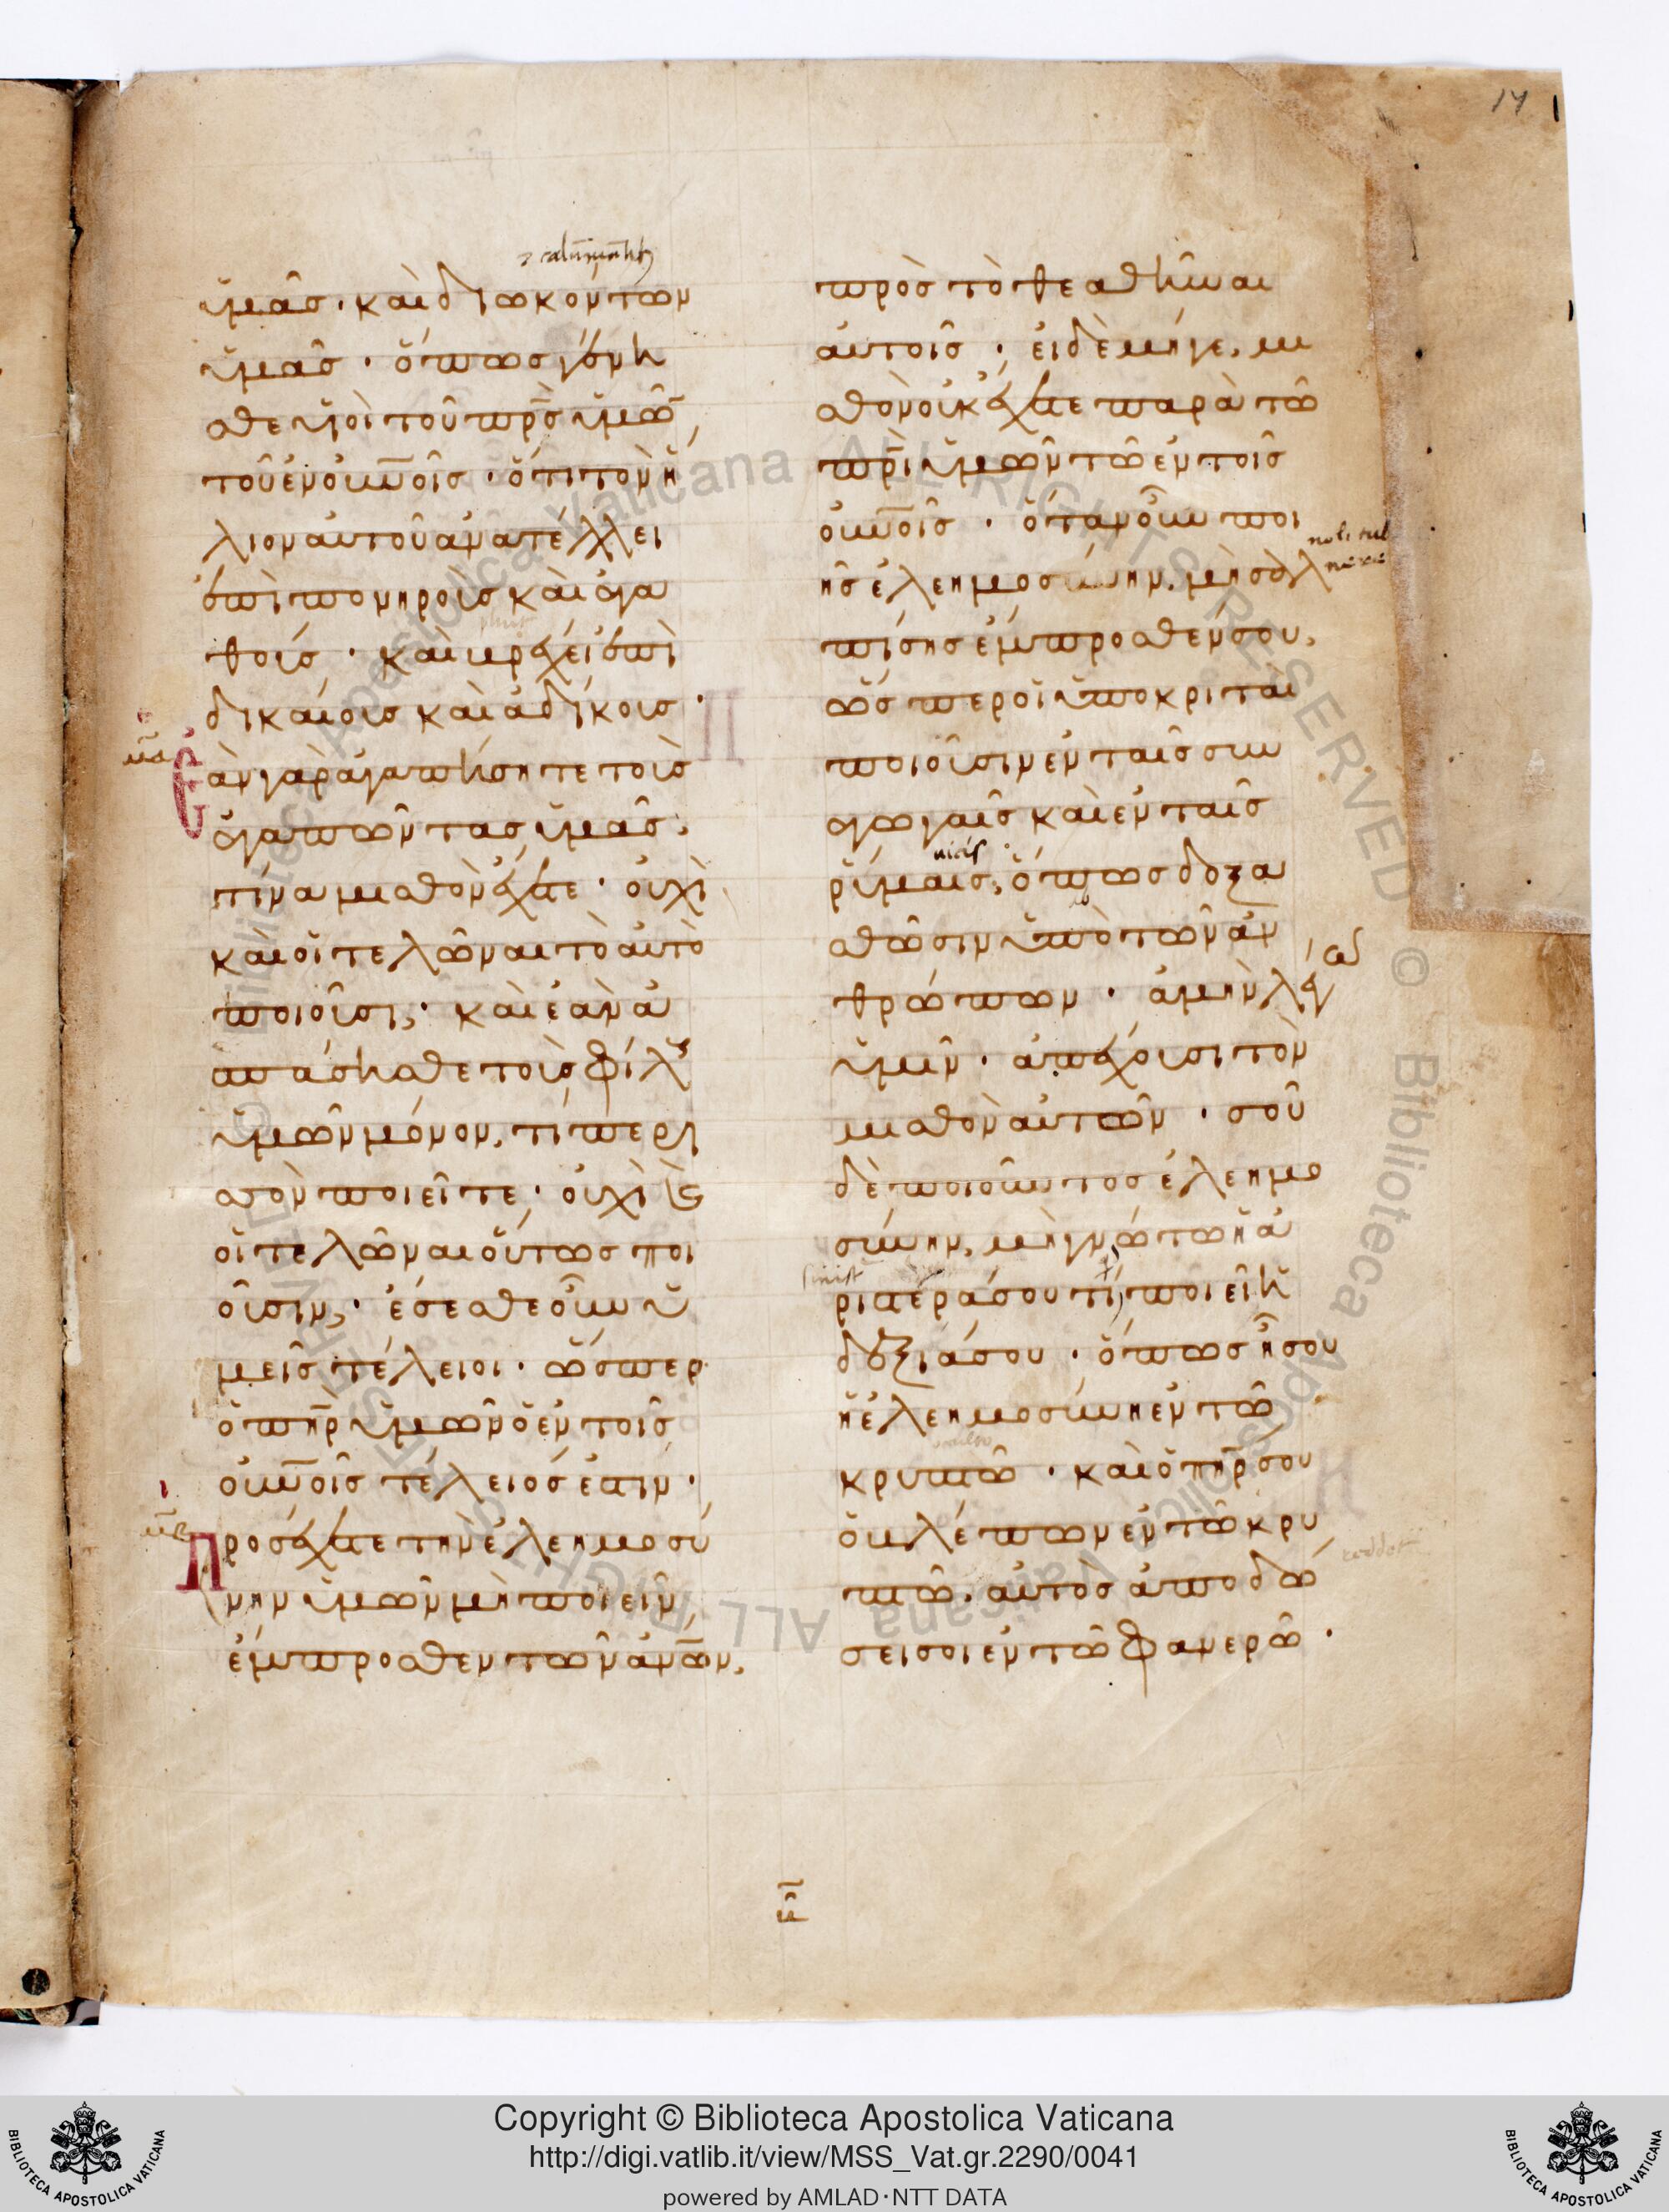 17
ὑμᾶσ · καὶ διωκοντων
ὑμᾶσ · ὅπωσ γένη
σθε υἱοὶ τοῦ πρ̅σ ὑμῶ̅,
τοῦ ἐν οὐν̅οῖσ · ὅτι τὸν ἥ
λιον αυτοῦ ἀνατέλλει
ἐπὶ πονηροὺσ καὶ ἀγα
θούσ · καὶ βρέχει ἐπὶ
δικαίουσ καὶ ἀδίκουσ ·
Ἐὰν γὰρ ἀγαπήσητε τοὺσ
ἀγαπῶντασ ὑμᾶσ,
τίνα μισθὸν ἔχετε · οὐχὶ
καὶ οἱ τελῶναι τὸ αὐτὸ
ποιοῦσι; · καὶ ἐὰν ἀ
σπάσησθε τοὺσ φίλουσ
ὑμῶν μόνον, τί περισ
σὸν ποιεῖτε, οὐχὶ καὶ
οἱ τελῶναι οὕτωσ ποι
οῦσιν; · ἔσεσθε οὖν ὑ
μεῖσ τέλειοι · ὥσπερ
ὁ πη̅ρ ὑμῶν ὁ ἐν τοῖσ
οὐν̅οῖσ τέλειόσ ἐστιν ·
Προσέχετε τὴν ἐλεημοσύ
νην ὑμῶν μὴ ποιεῖν,
ἔμπροσθεν τῶν ἀν̅ων,
πρὸσ τὸ θεαθῆναι
αὐτοῖσ · εἰ δὲ μήγε, μι
σθὸν οὐκ ἔχετε παρὰ τῶ
πρ̅ὶ ὑμῶν τῶ ἐν τοῖσ
οὐν̅οῖσ · ὅταν οὖν ποι
ῆσ ἐλεημοσύνην, μὴ σαλ
πίσησ ἔμπροσθεν σου,
ὥσπερ οἱ ὑποκριταὶ
ποιοῦσιν ἐν ταῖσ συν
αγωγαῖσ καὶ ἐν ταῖσ
ῥύμαισ, ὅπωσ δοξα
σθῶσιν ὑπὸ τῶν ἀν
θρώπων · ἀμὴν λέγω
ὑμῖν · ἀπέχουσι τὸν
μισθὸν αὐτῶν · σοῦ
δὲ ποιοῦντοσ ἐλεημο
σύνην, μὴ γνώτω ἡ ἀ
ριστερά σου τί ποιεῖ ἡ
δεξιά σου · ὅπωσ ἦ σου
ἡ ἐλεημοσύνη ἐν τῶ
κρυπτῶ · καὶ ὁ πη̅ρ σου
ὁ βλέπων ἐν τῶ κρυ
πτῶ, αὐτὸσ ἀποδώ
σει σοι ἐν τῶ φανερῶ ·
Copyright © Biblioteca Apostolica Vaticana
http://digi.vatlib.it/view/MSS_Vat.gr.2290/0041
powered by AMLAD·NTT DATA
BIBLIOTECA APOSTOLICA VATICANA
BIBLIOTECA APOSTOLICA VATICANA